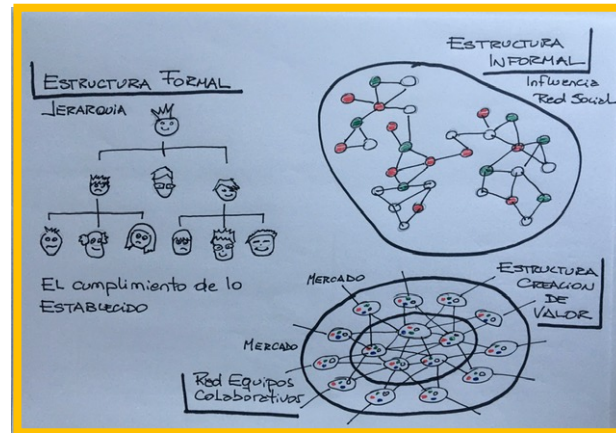 ESTRUCTURA FORMAL
JERARQUIA
EL cumplimiento de lo
ESTABLECIDO
ESTRUCTURA
INFORMAL
Influencia
Red Social
MERCADO
MERCADO
ESTRUCTURA
CREACION
DE
VALOR
Red Equipos
Colaborativos